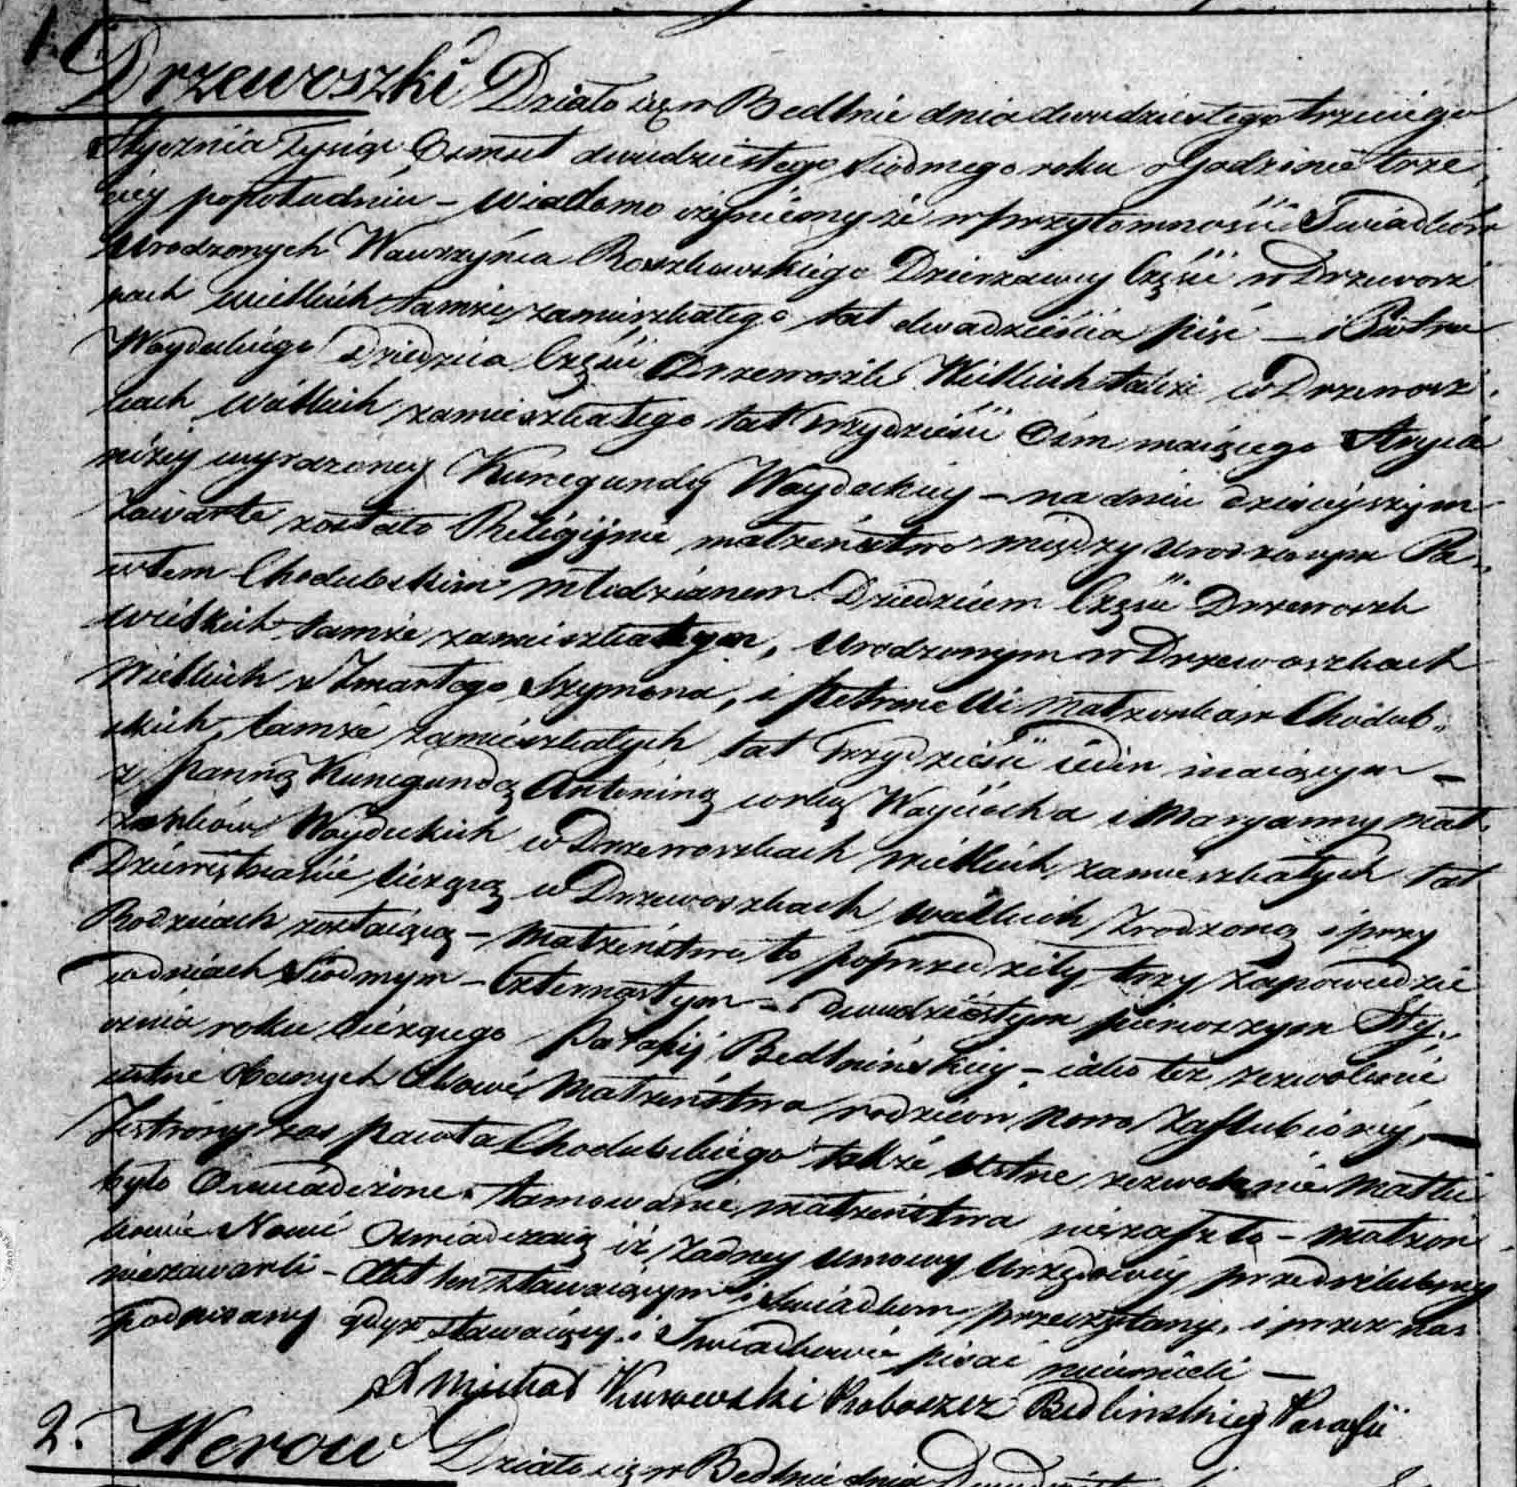 1.
Drzewoszki Działo się w Bedlnie dnia dwudziestego trzeciego
Stycznia Tysiąc Osmset dwudziestego siodmego roku o Godzinie trze
ciey popołudniu – wiadomo czyniemy że w przytomności Swiadków
Urodzonych Wawrzyńca Roszkowskiego Dzierzawcy Części w Drzewosz
kach wielkich tamże zamieszkałego lat dwadzieścia pięć – i Piotra
Waydeckiego Dziedzica Części Drzewoszek Wielkich także w Drzewosz
kach wielkich zamieszkałego lat trzydzieści Ośm maiącego Stryia
niżey wyrażoney Kunegundy Waydeckiey – na dniu dzisieyszym
Zawarte zostało Religijnie małżeństwo między Urodzonym Pa
włem Chodubskim młodzianem Dziedzicem Części Drzewoszek
wielkich tamże zamieszkałym, Urodzonym w Drzewoszkach
Wielkich z Zmarłego Szymona, i Petronelli małżonków Chodub
skich, tamże zamieszkałych lat Trzydzieści ieden maiącym –
z Panną Kunegundą Antoniną corką Woyciecha i Maryanny Mał
żonków Waydeckich w Drzewoszkach wielkich zamieszkałych lat
Dziewiętnaście liczącą w Drzewoszkach wielkich Zrodzoną i przy
Rodzicach zostaiącą – Małżeństwo to poprzedziły trzy zapowiedzie
w dniach Siodmym – Czternastym – i dwudziestym pierwszym Sty
cznia roku bieżącego Parafij Bedlnińskiey – iako też zezwolenie
ustne obecnych Aktowi Małżeństwa rodziców Nowo Zaslubioney, –
Ze strony zas Pawła Chodubskiego także Ustne zezwolenie Matki
było Oswiadczone. tamowanie małżeństwa niezaszło – Małżon
kowie Nowi Oswiadczaią iż żadney umowy Urzędowey przedslubney
niezawarli – Akt ten stawaiącym i Swiadkom przeczytany, i przez nas
podpisany gdyż stawaiący i Swiadkowie pisać nieumieli –
X Michał Kurowski Proboszcz Bedlinskiey Parafii
2. Werow Działo się w Bedlnie dnia